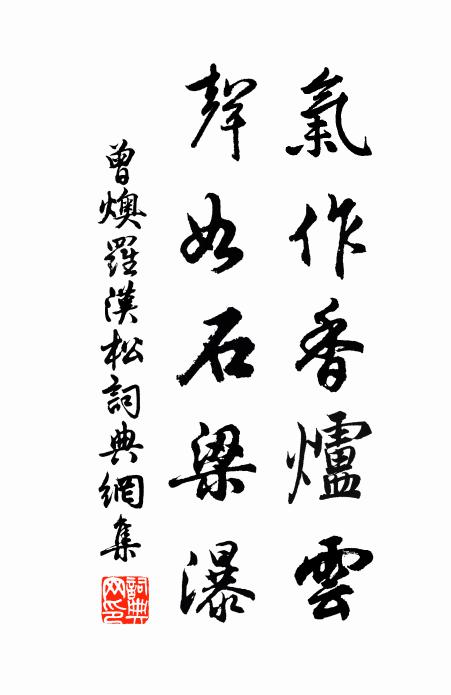 氣作香爐雲
聲如石梁瀑
曾燠羅漢松詞典網集
詞典網印